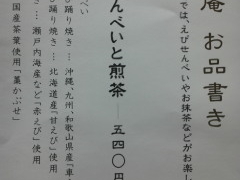 庵 お品書き
では、えびせんべいやお抹茶などがお楽し
んべいと煎茶 ― 五四〇円
べい
び踊り焼き … 沖縄、九州、和歌山県産「車
び踊り焼き … 北海道産「甘えび」使用
り焼き … 瀬戸内海産など「赤えび」使用
国産茶葉使用「葉かぶせ」